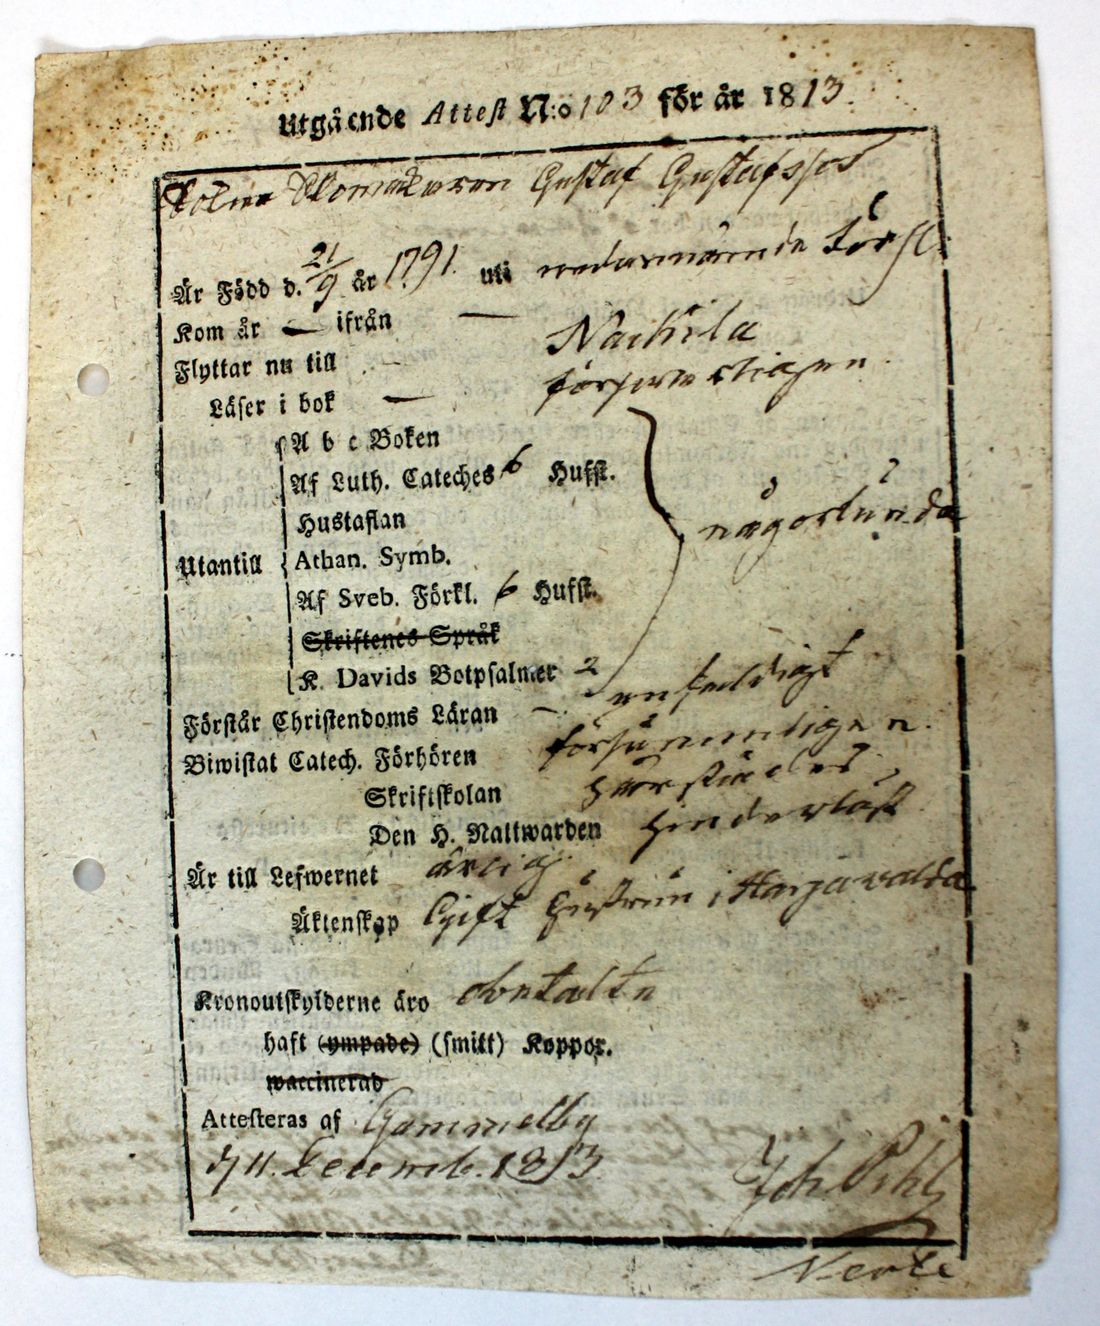 Utgående Attest N:o 103 för år 1813.
Skomakaren Gustaf Gustafsson
Är Född d. 21/9 år 1791. uti nedannämnde Förs:
Kom år — ifrån —
Flyttar nu till — Nackila
Läser i bok —
A b c Boken
Af Luth. Cateches 6 Hufst.
Hustaflan
någorlunda
Utantill Athan. Symb.
Af Sveb. Förkl. 6 Hufst.
Skriftenes Språk
K. Davids Botpsalmer 2
Förstår Christendoms Läran — enfaldigt
Biwistat Catech. Förhören försummeligen.
Skriftskolan härstädes
Den H. Nattwarden hinderlöst
Är till Lefwernet ärlig
Äktenskap Gift Hustrun i Harjavalda
Kronoutskylderne äro obetalte
haft (ympade) (smitt) Koppor.
waccinerad
Attesteras af Gammelby
d 11. Decemb. 1813.
Joh.
Verte